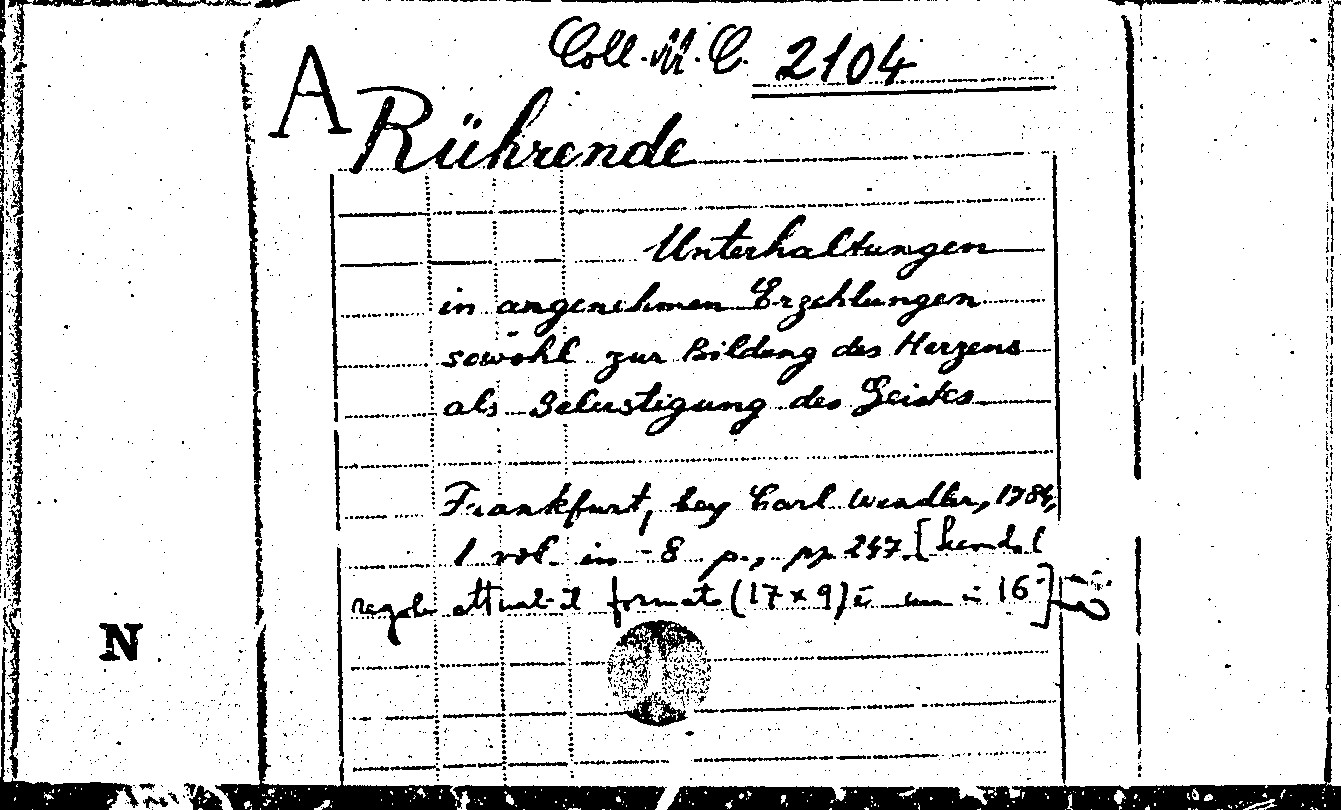 Coll. M. C. 2104
A
Rührende
Unterhaltungen
in angenehmen Erzehlungen
sowohl zur Bildung des Herzens
als Belustigung des Geistes
Frankfurt, bey Carl Wendler, 1784,
1 vol. in-8 p., pp 247 [
formato (17 x 9) è un in 16°]
N